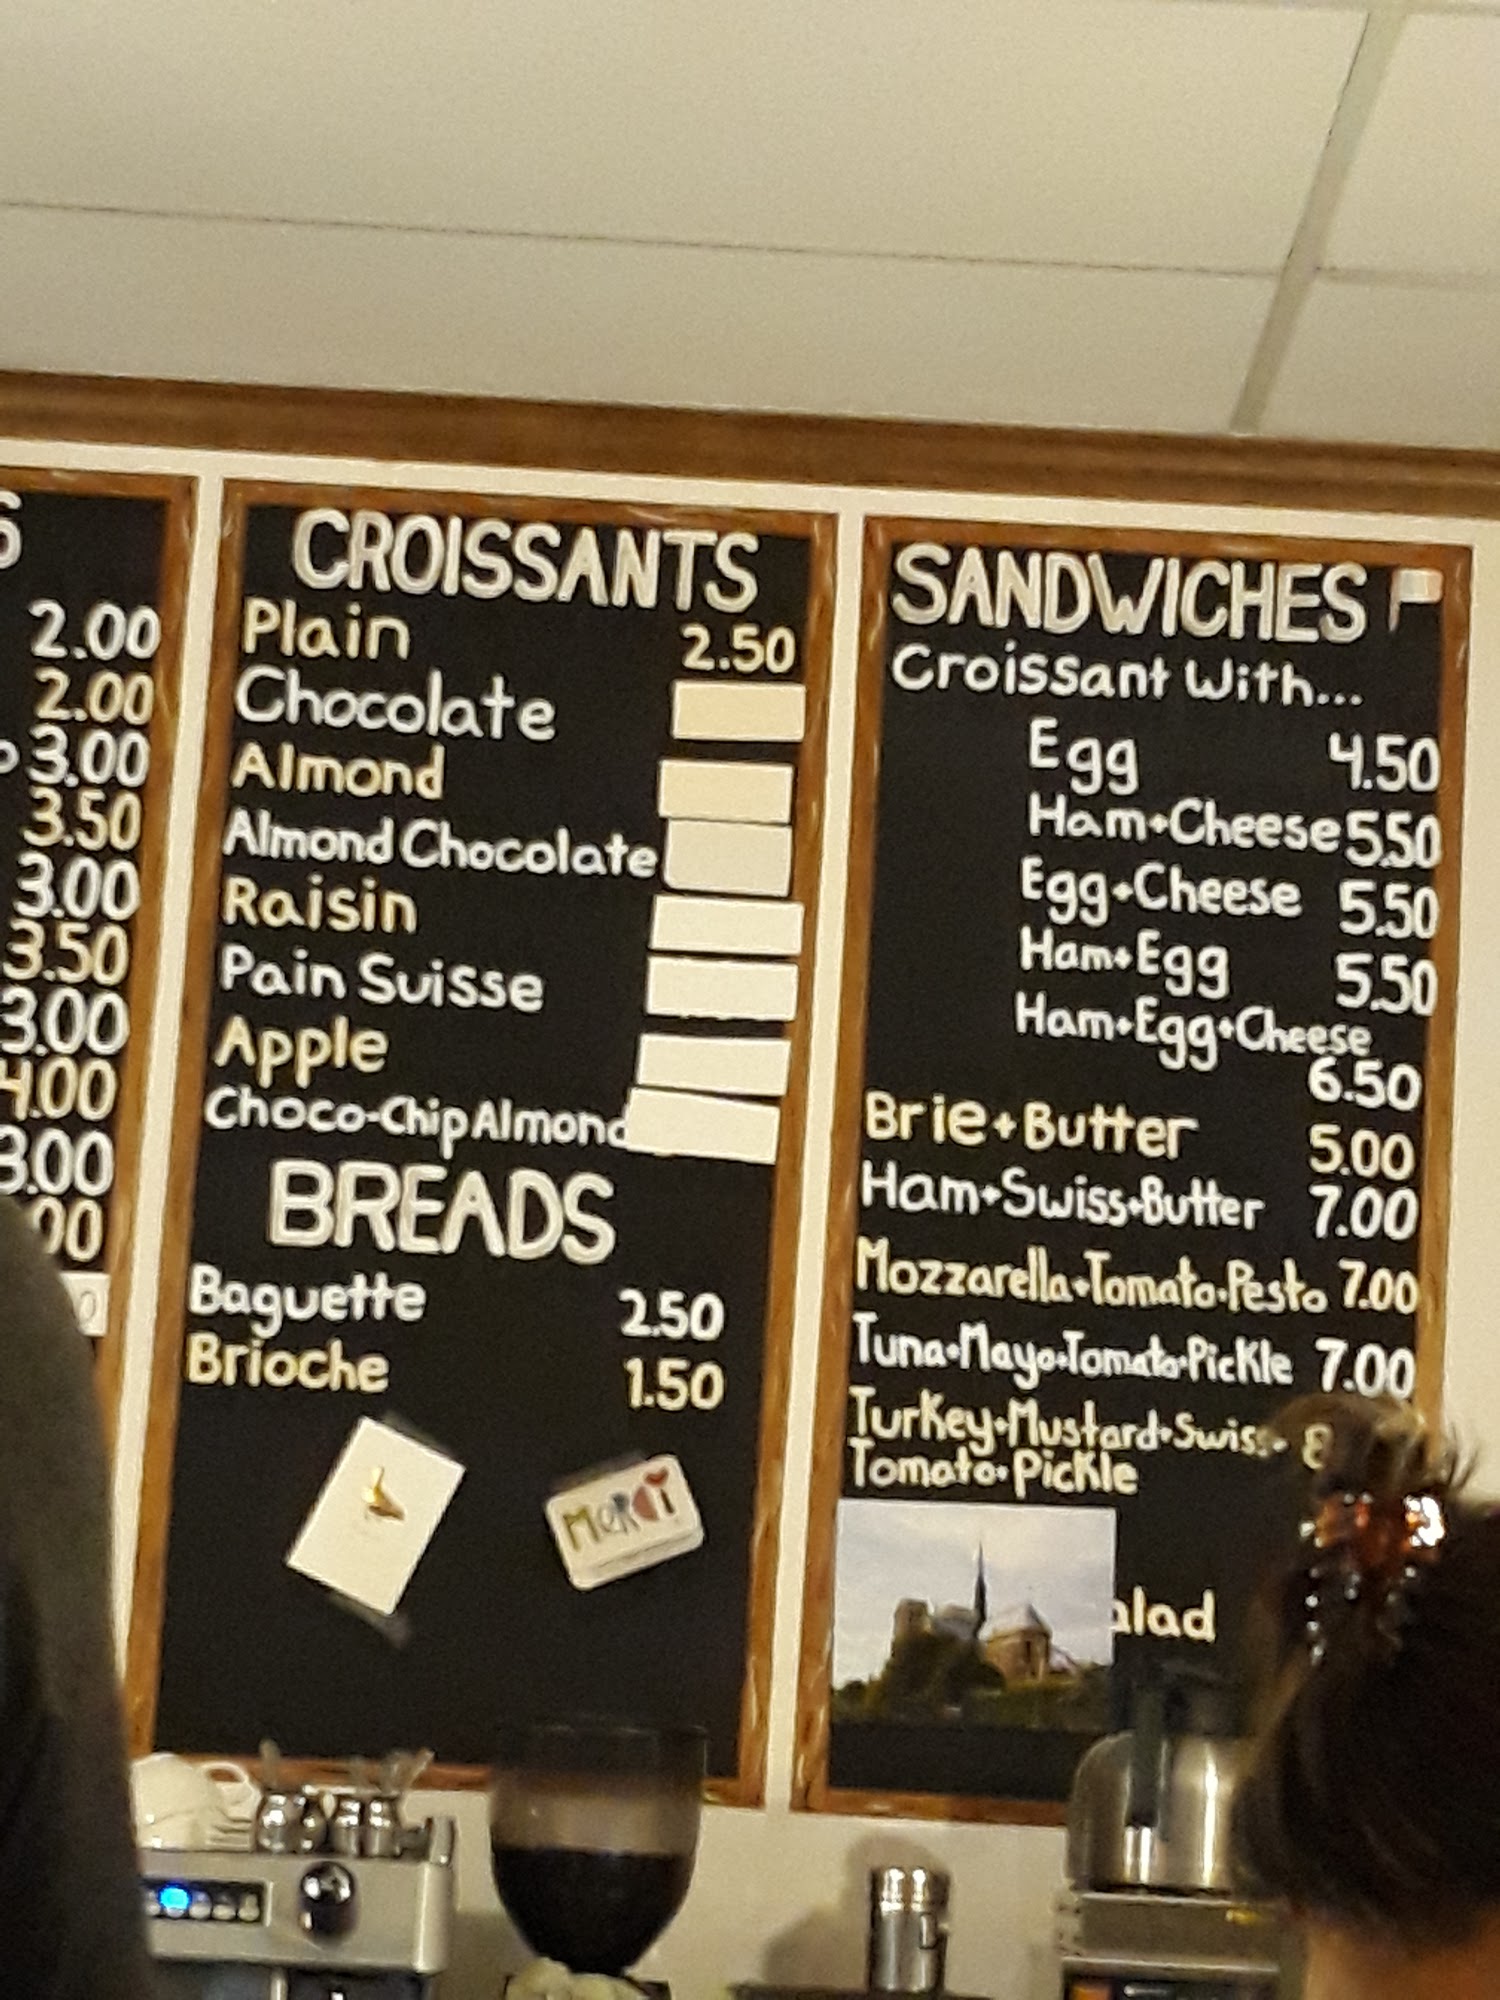 2.00
2.00
3.00
3.50
3.00
3.50
3.00
4.00
3.00
CROISSANTS
Plain 2.50
Chocolate
Almond
Almond Chocolate
Raisin
Pain Suisse
Apple
Choco-Chip Almond
BREADS
Baguette 2.50
Brioche 1.50
MERCi
SANDWICHES
Croissant With...
Egg 4.50
Ham+Cheese 5.50
Egg+Cheese 5.50
Ham+Egg 5.50
Ham+Egg+Cheese
6.50
Brie+Butter 5.00
Ham+Swiss+Butter 7.00
Mozzarella+Tomato+Pesto 7.00
Tuna+Mayo+Tomato+Pickle 7.00
Turkey+Mustard+Swiss+
Tomato+Pickle
alad